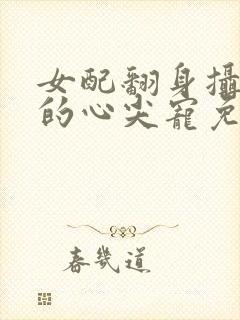 女配翻身攝
的心尖寵免
春幾道